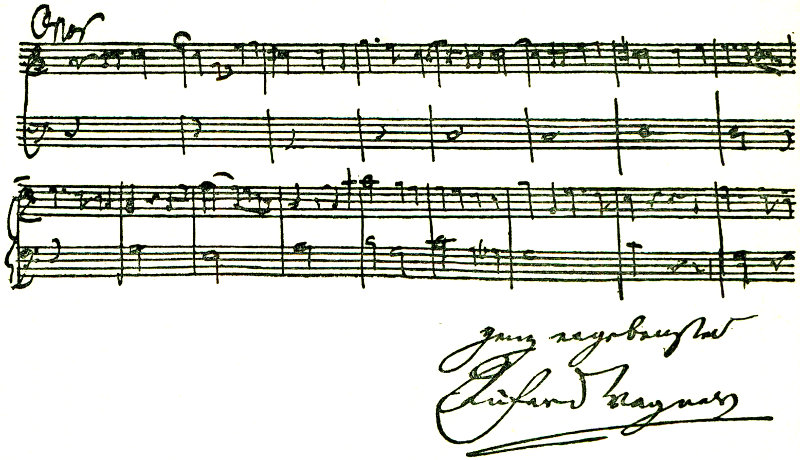 ganz ergebenster
Richard Wagner